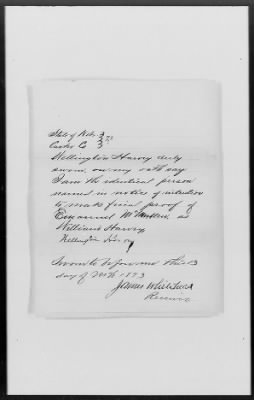 State of Neb. }
Custer Co } ss
Wellington Harvey duly
sworn on my oath say
I am the identical person
named in notice of intention
to make final proof of
Emanuel as
William Harvey
Wellington Harvey
Sworn to before me this 13
day of 1893
James Whitehead
Receiver